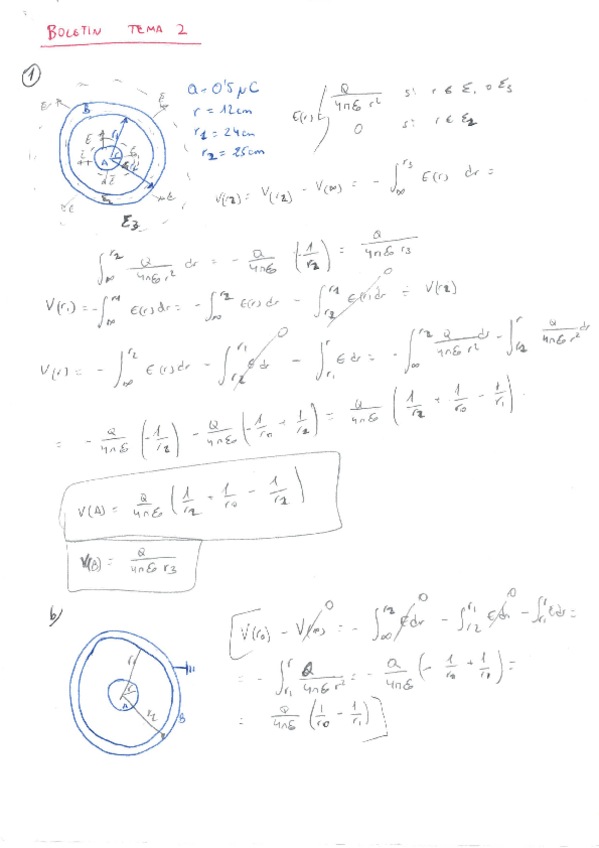 BOLETIN TEMA 2
1
Q = 0'5 μC
r = 12cm
r1 = 24cm
r2 = 25cm
E(r) { Q / 4πε0 r² si r ∈ E1 o E3
0 si r ∈ E2
B
A
E3
V(r2) = V(r2) - V(∞) = - ∫∞^r3 E(r) dr =
∫∞^r2 Q / 4πε0 r² dr = - Q / 4πε0 (-1/r2) = Q / 4πε0 r3
V(r1) = - ∫∞^r1 E(r)dr = - ∫∞^r2 E(r)dr - ∫r2^r1 E(r)dr 0 = V(r2)
V(r) = - ∫∞^r2 E(r)dr - ∫r2^r1 E dr 0 - ∫r1^r E dr = - ∫∞^r2 Q / 4πε0 r² dr - ∫r2^r Q / 4πε0 r² dr
= - Q / 4πε0 (-1/r2) - Q / 4πε0 (-1/r0 + 1/r2) = Q / 4πε0 (1/r2 + 1/r0 - 1/r1)
V(A) = Q / 4πε0 (1/r2 + 1/r0 - 1/r2)
V(B) = Q / 4πε0 r3
b)
r1
r
A
r2
B
V(r0) - V(∞) 0 = - ∫∞^r2 E dr 0 - ∫r2^r1 E dr 0 - ∫r1^r E dr =
= - ∫r1^r Q / 4πε0 r² = - Q / 4πε0 (-1/r0 + 1/r1) =
= Q / 4πε0 (1/r0 - 1/r1)